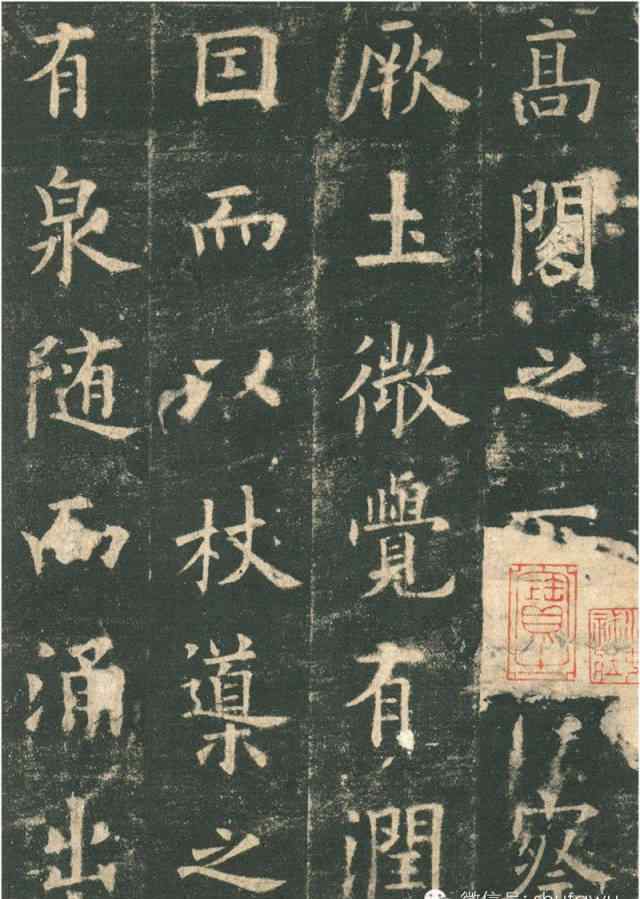 高閣之察
厥土微覺有潤
因而以杖導之
有泉随而涌出
微信号: shufawu